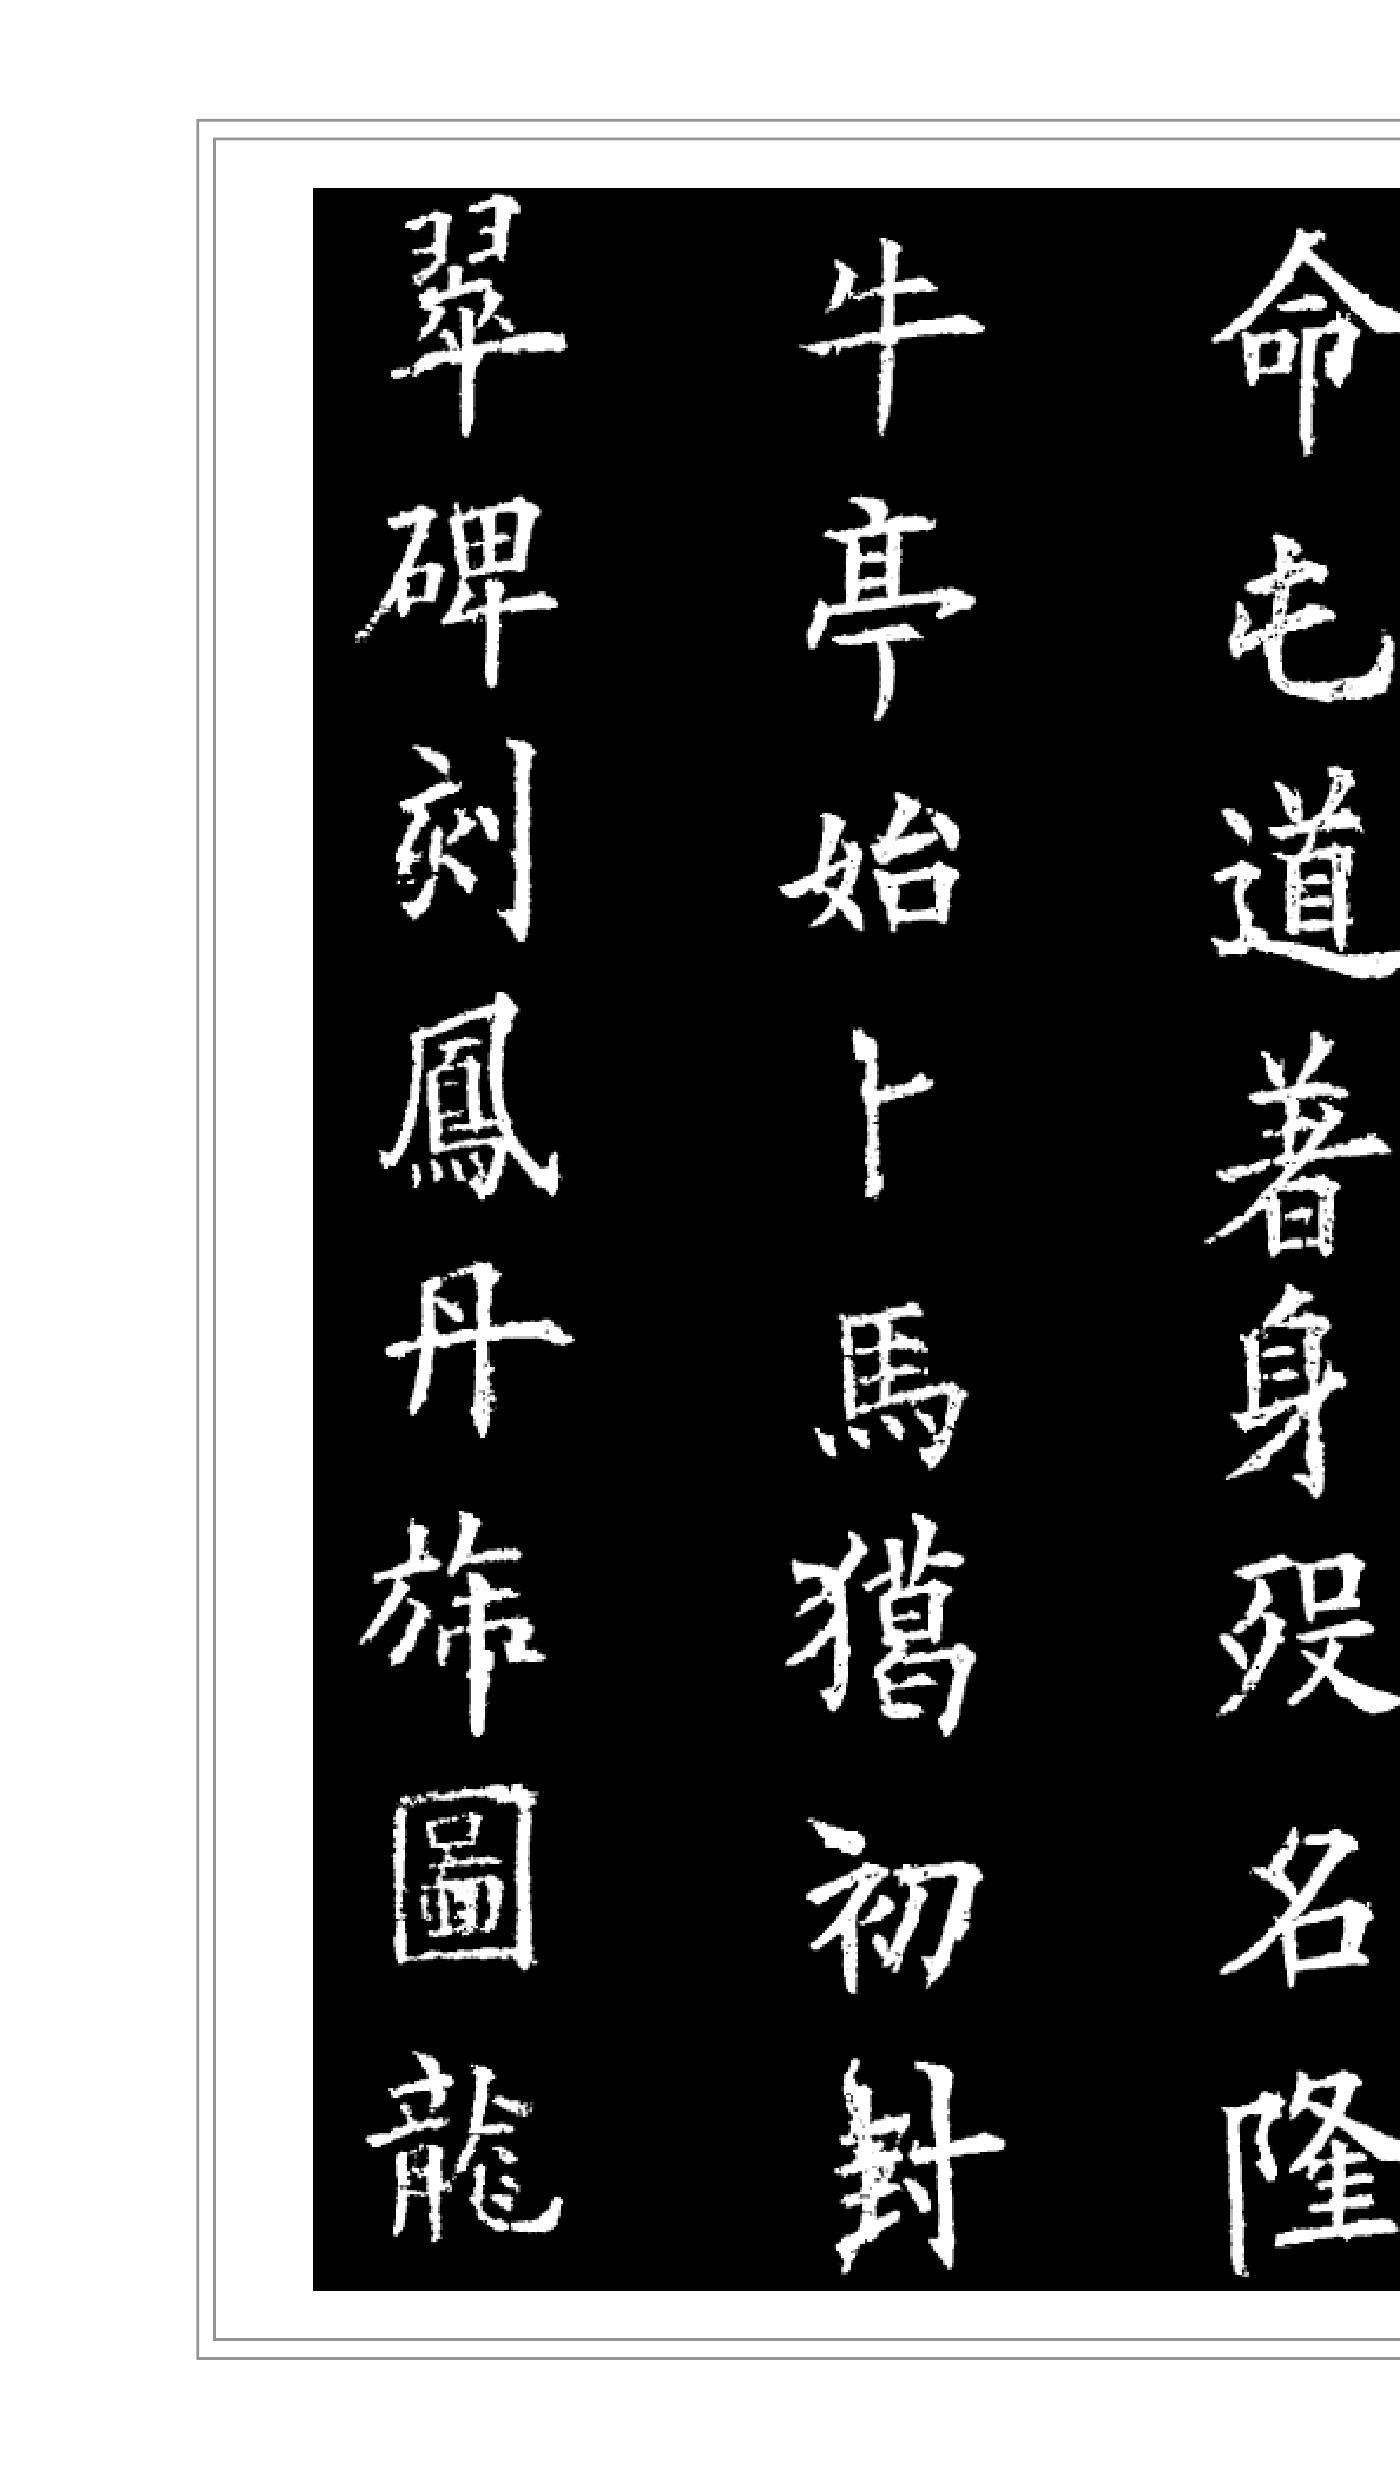 命屯道著身歿名隆
牛亭始卜馬獦初封
翠碑刻鳳丹旆圖龍